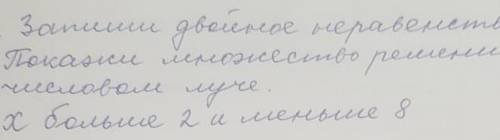 Запиши двойное неравенств
Покажи множество решени
числовом луче.
х больше 2 и меньше 8